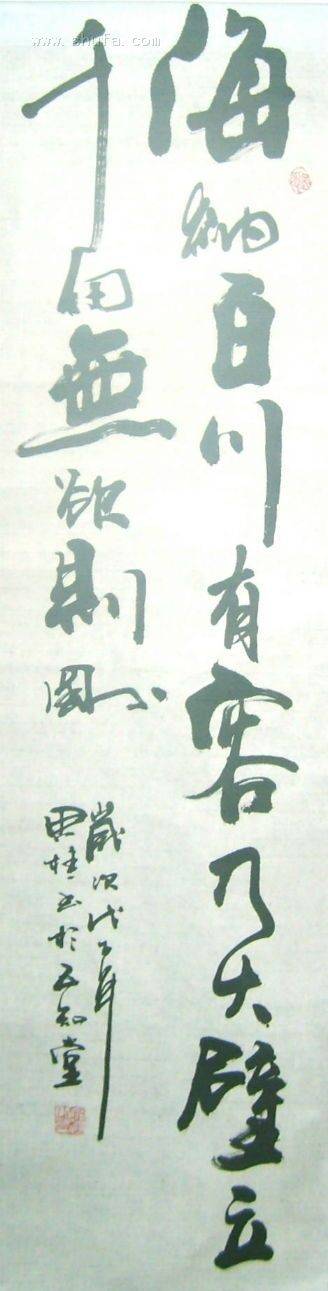 www.shufa.com
海納百川有容乃大壁立
千仞無欲則剛
歲次戊子年
桂书於五知堂